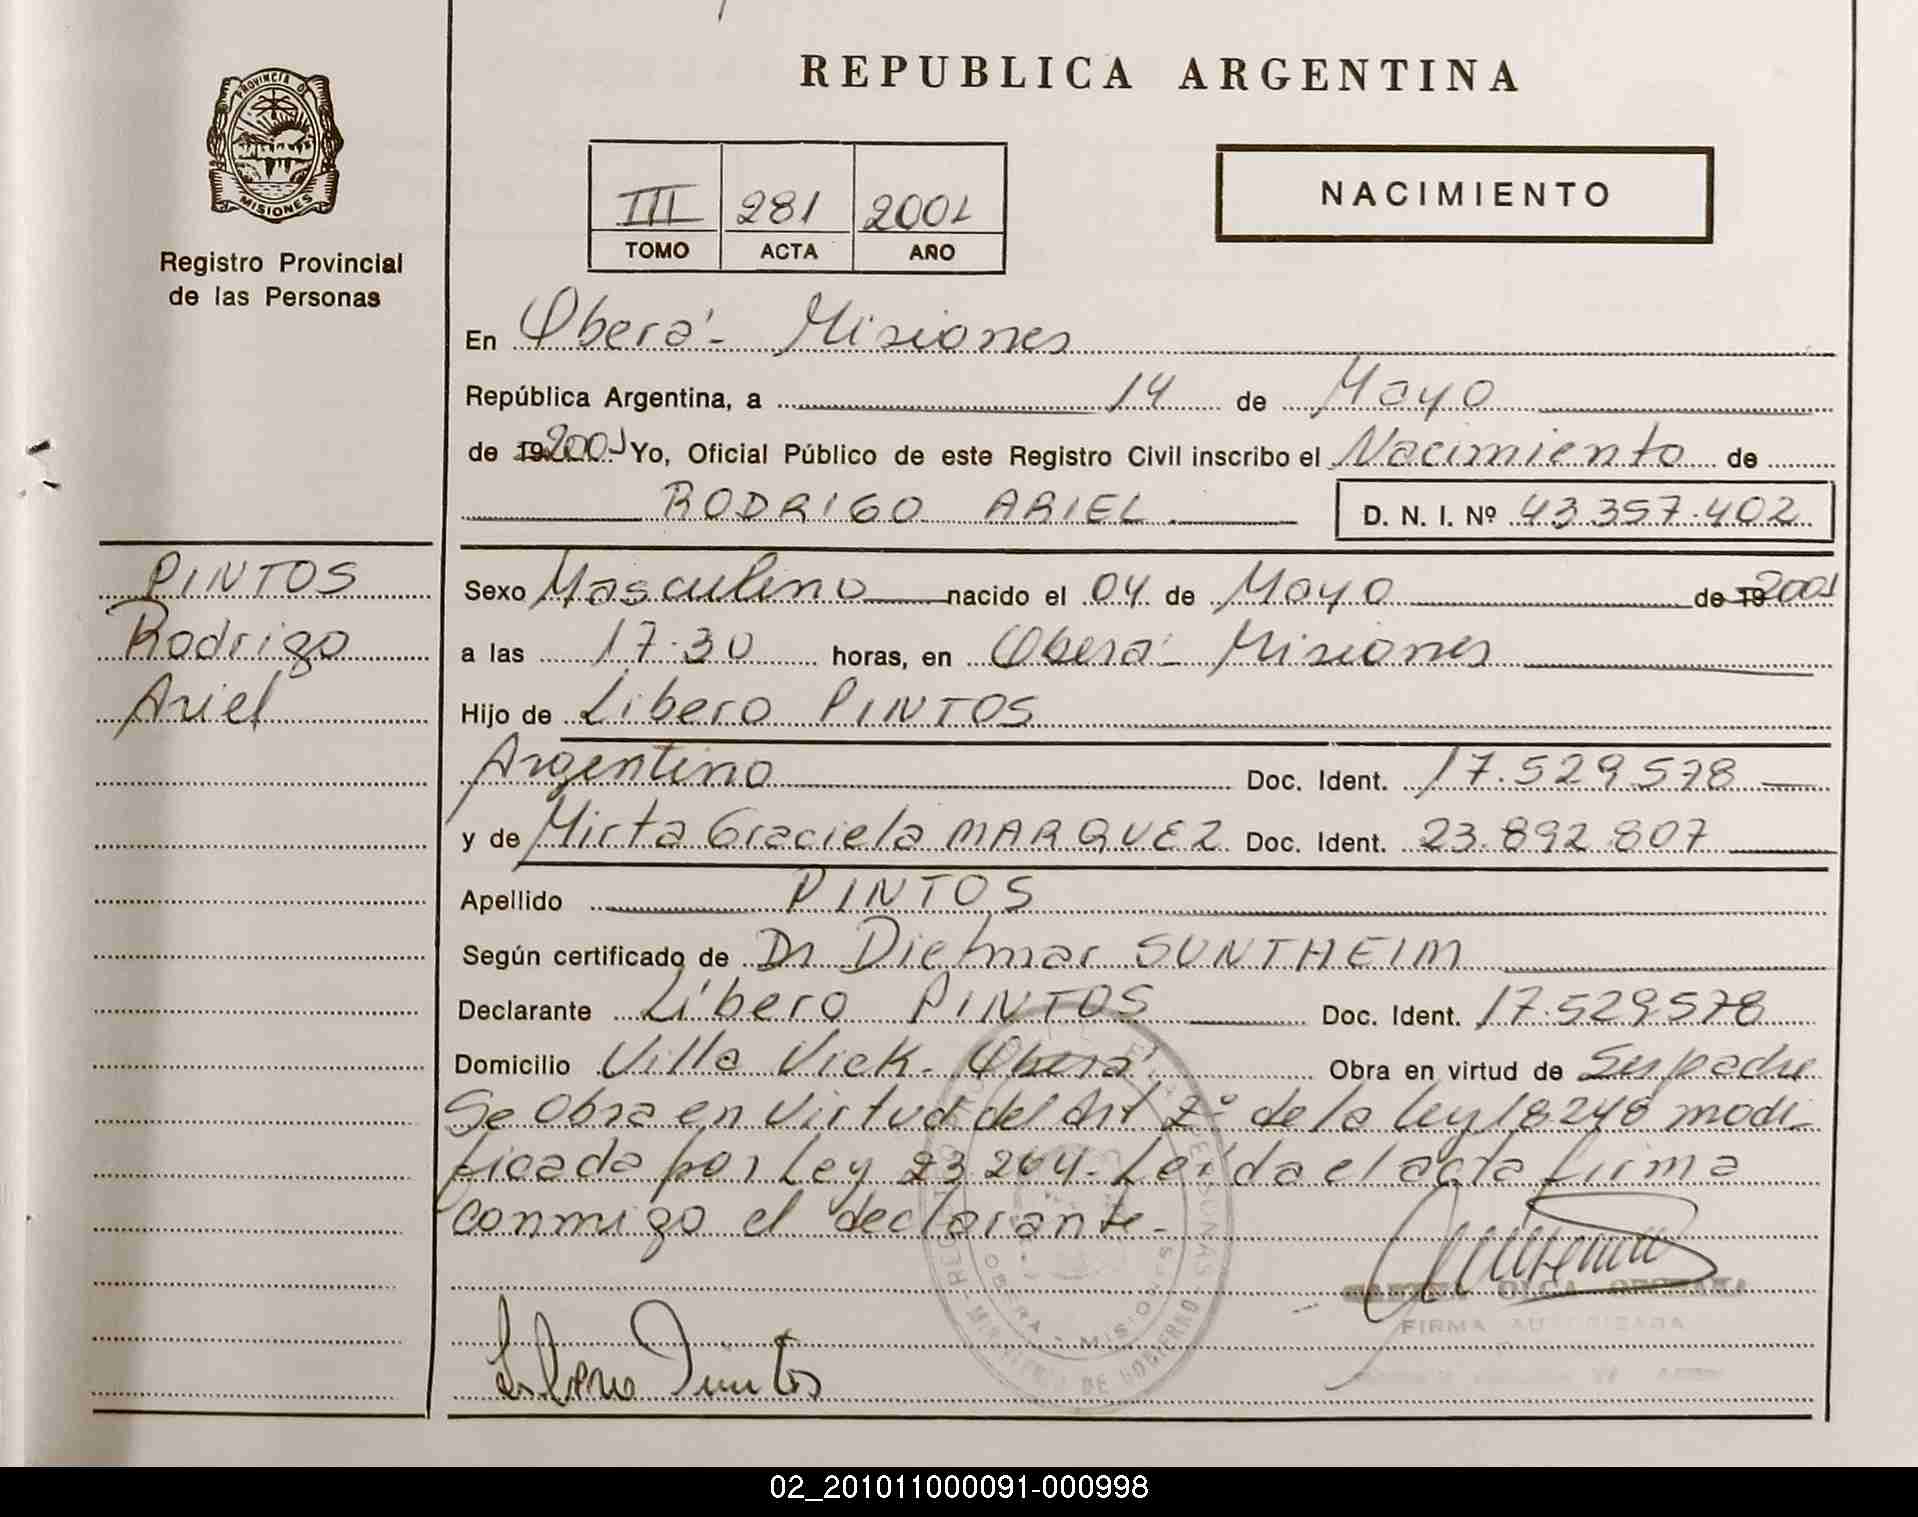 REPUBLICA ARGENTINA
PROVINCIA DE
MISIONES
Registro Provincial
de las Personas
III 281 2001
TOMO ACTA AÑO
NACIMIENTO
En Oberá - Misiones
República Argentina, a 14 de Mayo
de 19 2001 Yo, Oficial Público de este Registro Civil inscribo el Nacimiento de
RODRIGO ARIEL D. N. I. Nº 43.357.402
PINTOS
Rodrigo
Ariel
Sexo Masculino nacido el 04 de Mayo de 19 2001
a las 17.30 horas, en Oberá - Misiones
Hijo de Libero PINTOS
Argentino Doc. Ident. 17.529.578
y de Mirta Graciela MARQUEZ Doc. Ident. 23.892.807
Apellido PINTOS
Según certificado de Dr Dietmar SUNTHEIM
Declarante Líbero PINTOS Doc. Ident. 17.529.578
Domicilio Villa Vick - Oberá Obra en virtud de Ser padre
Se Obra en Virtud del Art 2º de la Ley 18.248 modi
ficada por Ley 23.264 - Leída el acta firma
conmigo el declarante -
OLGA
FIRMA AUTORIZADA
OBERA - MISIONES
DE GOBIERNO
Libero Pintos
02_201011000091-000998